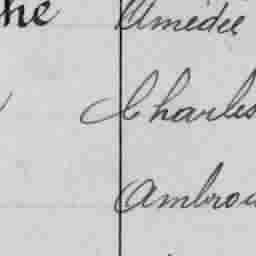 he Amédée
Charles
Ambroi